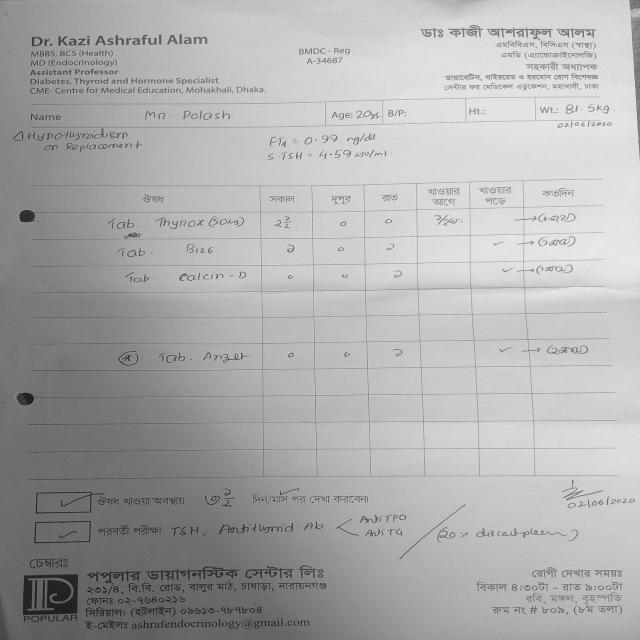 Dr. Kazi Ashraful Alam
MBBS, BCS (Health)
MD (Endocrinology)
Assistant Professor
Diabetes, Thyroid and Hormone Specialist
CME- Centre for Medical Education, Mohakhali, Dhaka.
BMDC - Reg
A-34687
ডাঃ কাজী আশরাফুল আলম
এমবিবিএস, বিসিএস (স্বাস্থ্য)
এমডি (এ্যান্ডোক্রাইনোলজি)
সহকারী অধ্যাপক
ডায়াবেটিস, থাইরয়েড ও হরমোন রোগ বিশেষজ্ঞ
সেন্টার ফর মেডিকেল এডুকেশন, মহাখালী, ঢাকা
Name Mr. Polash Age: 20ys B/P: Ht.: Wt.: 81.5kg
02/06/2020
Δ Hypothyroidism on Replacement
FT4 = 0.99 ng/dl
S. TSH = 4.59
ঔষধ সকাল দুপুর রাত খাওয়ার আগে খাওয়ার পড়ে কতদিন
Tab. Thyrox (50μg) ২ ১/২ ০ ০
Tab. B126 ১ ০ ১ ✓
Tab. Calcin-D ০ ০ ১ ✓
Tab. Anzet ০ ০ ১ ✓
✓ ঔষধ খাওয়া অবস্থায় দিন/মাস পর দেখা করবেন।
02/06/2020
✓ পরবর্তী পরীক্ষা TSH, Antithyroid Ab < Anti TPO Anti TG
চেম্বারঃ
POPULAR
পপুলার ডায়াগনস্টিক সেন্টার লিঃ
২৩১/৪, বি.বি. রোড, বালুর মাঠ, চাষাড়া, নারায়নগঞ্জ
ফোনঃ ০২-৭৬৪০২১৬
সিরিয়াল: (হটলাইন) ০৯৬১৩-৭৮৭৮০৪
ই-মেইলঃ ashrafendocrinology@gmail.com
রোগী দেখার সময়ঃ
বিকাল ৪:৩০টা - রাত ৯:০০টা
রবি, মঙ্গল, বৃহস্পতি
রুম নং # ৮০৯, (৮ম তলা)